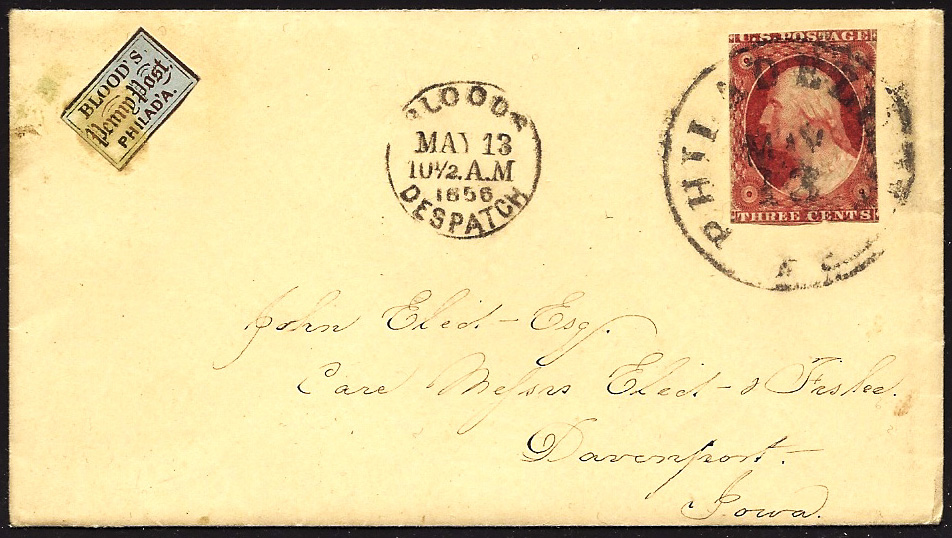 BLOOD'S
Penny Post
PHILAD'A.
BLOODS
MAY 13
10½ A.M
1856
DESPATCH
U.S. POSTAGE
THREE CENTS
PHILADEL
MAY
13
John Elid - Esq.
Care Messrs Elid - & Fiske.
Davenport.-
Iowa.